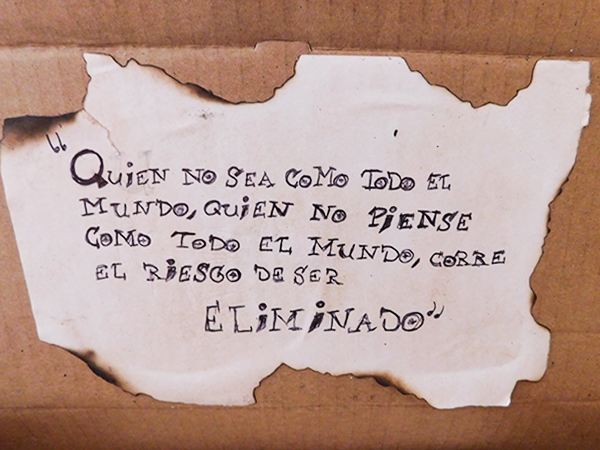 “Quien no sea como todo el
mundo, quien no piense
como todo el mundo, corre
el riesgo de ser
eliminado”